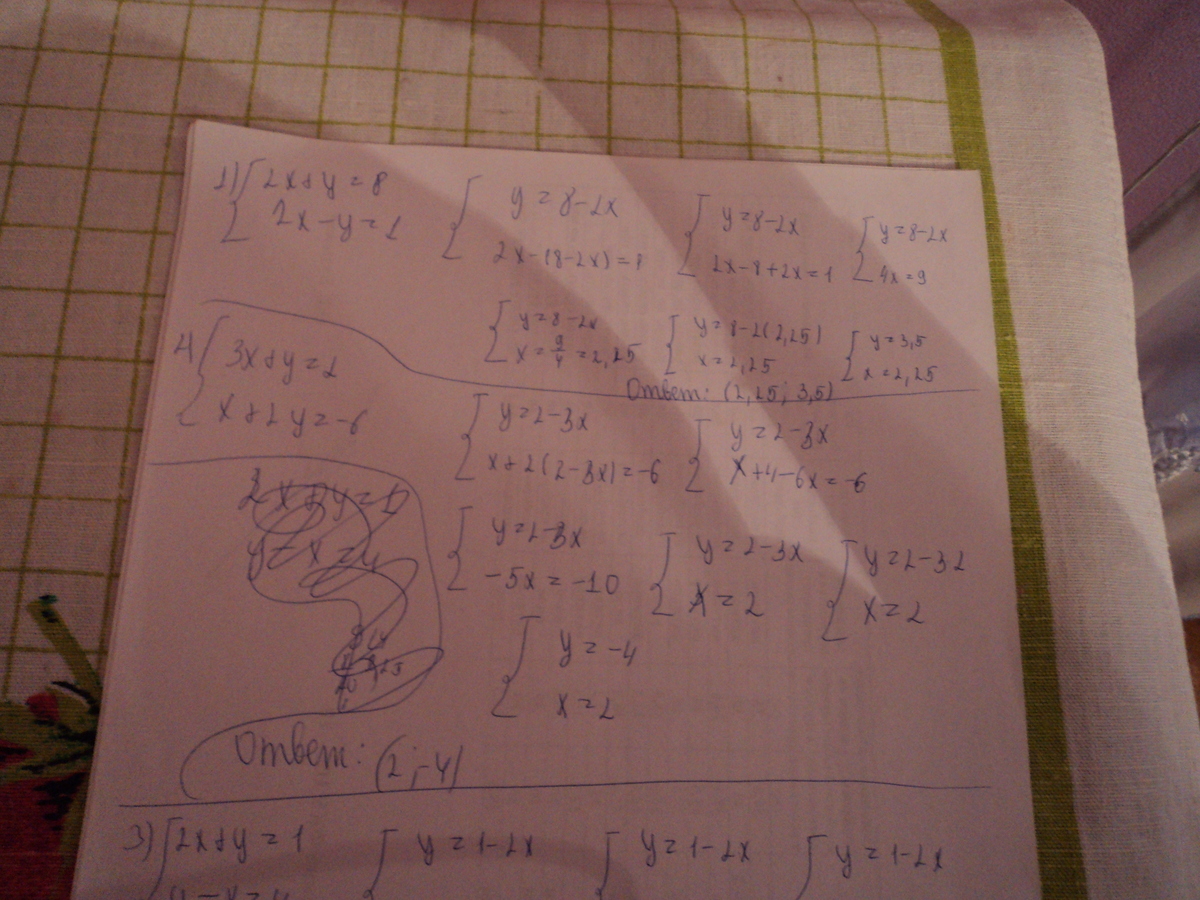 1) { 2x+y=8
2x-y=1
{ y=8-2x
2x-(8-2x)=1
{ y=8-2x
2x-8+2x=1
{ y=8-2x
4x=9
{ y=8-2x
x=9/4=2,25
{ y=8-2(2,25)
x=2,25
{ y=3,5
x=2,25
Ответ: (2,25; 3,5)
{ 3x+y=2
x+2y=-6
{ y=2-3x
x+2(2-3x)=-6
{ y=2-3x
x+4-6x=-6
{ y=2-3x
-5x=-10
{ y=2-3x
x=2
{ y=2-32
x=2
{ y=-4
x=2
Ответ: (2;-4)
3) { 2x+y=1
y-x=4
{ y=1-2x
{ y=1-2x
{ y=1-2x